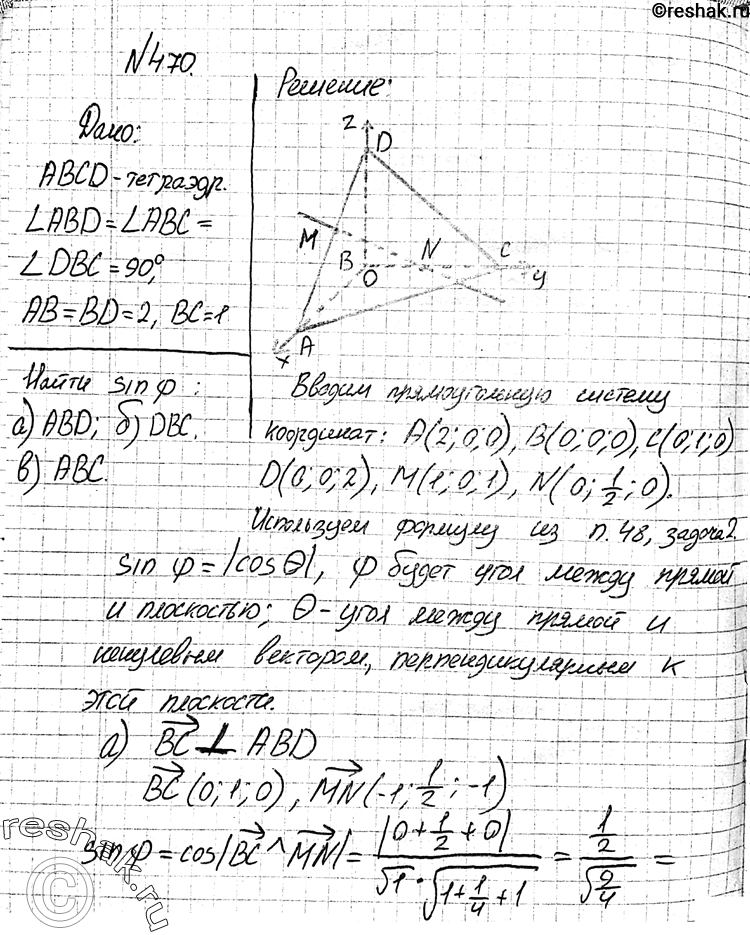 ©reshak.ru
№470.
Дано:
ABCD-тетраэдр.
∠ABD=∠ABC=
∠DBC=90°,
AB=BD=2, BC=1
Найти sin φ:
а) ABD; б) DBC.
в) ABC.
Решение:
z
D
M
B
O
N
C
y
A
x
Вводим прямоугольную систему
координат: A(2;0;0), B(0;0;0), C(0;1;0)
D(0;0;2), M(1;0;1), N(0;1/2;0).
Используем формулу из п.48, задача2
sin φ=|cos θ|, φ будет угол между прямой
и плоскостью; θ-угол между прямой и
ненулевым вектором, перпендикулярным к
этой плоскости.
а) BC⃗ ⊥ ABD
BC⃗ (0;1;0), MN⃗ (-1;1/2;-1)
sin φ=cos|BC⃗ ^ MN⃗|= |0+1/2+0| / √1·√(1+1/4+1) = (1/2)/√(9/4) =
reshak.ru
©